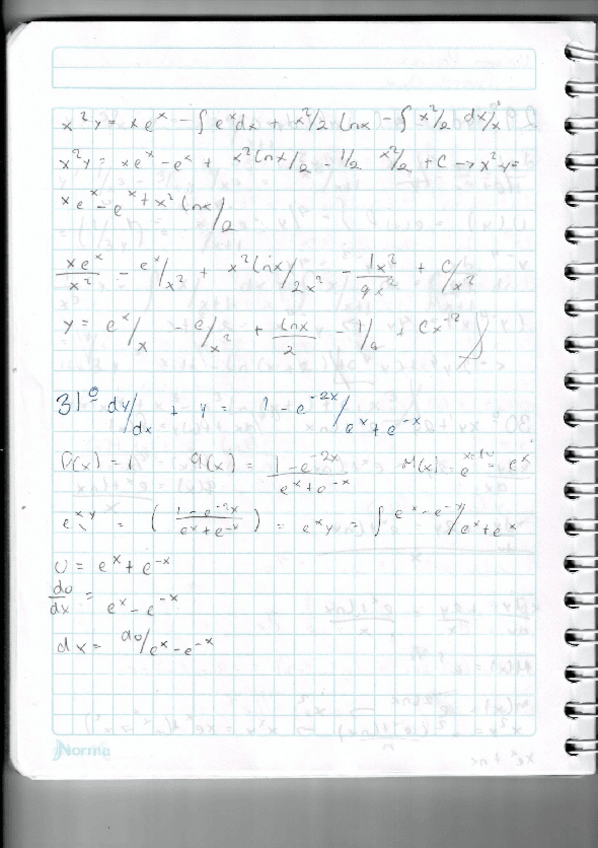 x²y = xe^x - ∫e^x dx + x²/2 lnx - ∫ x²/2 dx/x
x²y = xe^x - e^x + x² lnx/2 - 1/2 x²/2 + C → x²y =
xe^x - e^x + x² lnx/2
xe^x/x² - e^x/x² + x² lnx/2x² - 1x²/4x² + C/x²
y = e^x/x - e/x² + lnx/2 - 1/4 + Cx^-2
31º dy/dx + y = 1 - e^-2x/e^x + e^-x
P(x) = 1 Q(x) = 1 - e^-2x/e^x + e^-x M(x) = e = e^x
e^x y = (1 - e^-2x/e^x + e^-x) = e^x y = ∫ e^x - e^-x/e^x + e^x
U = e^x + e^-x
du/dx = e^x - e^-x
dx = du/e^x - e^-x
Norma